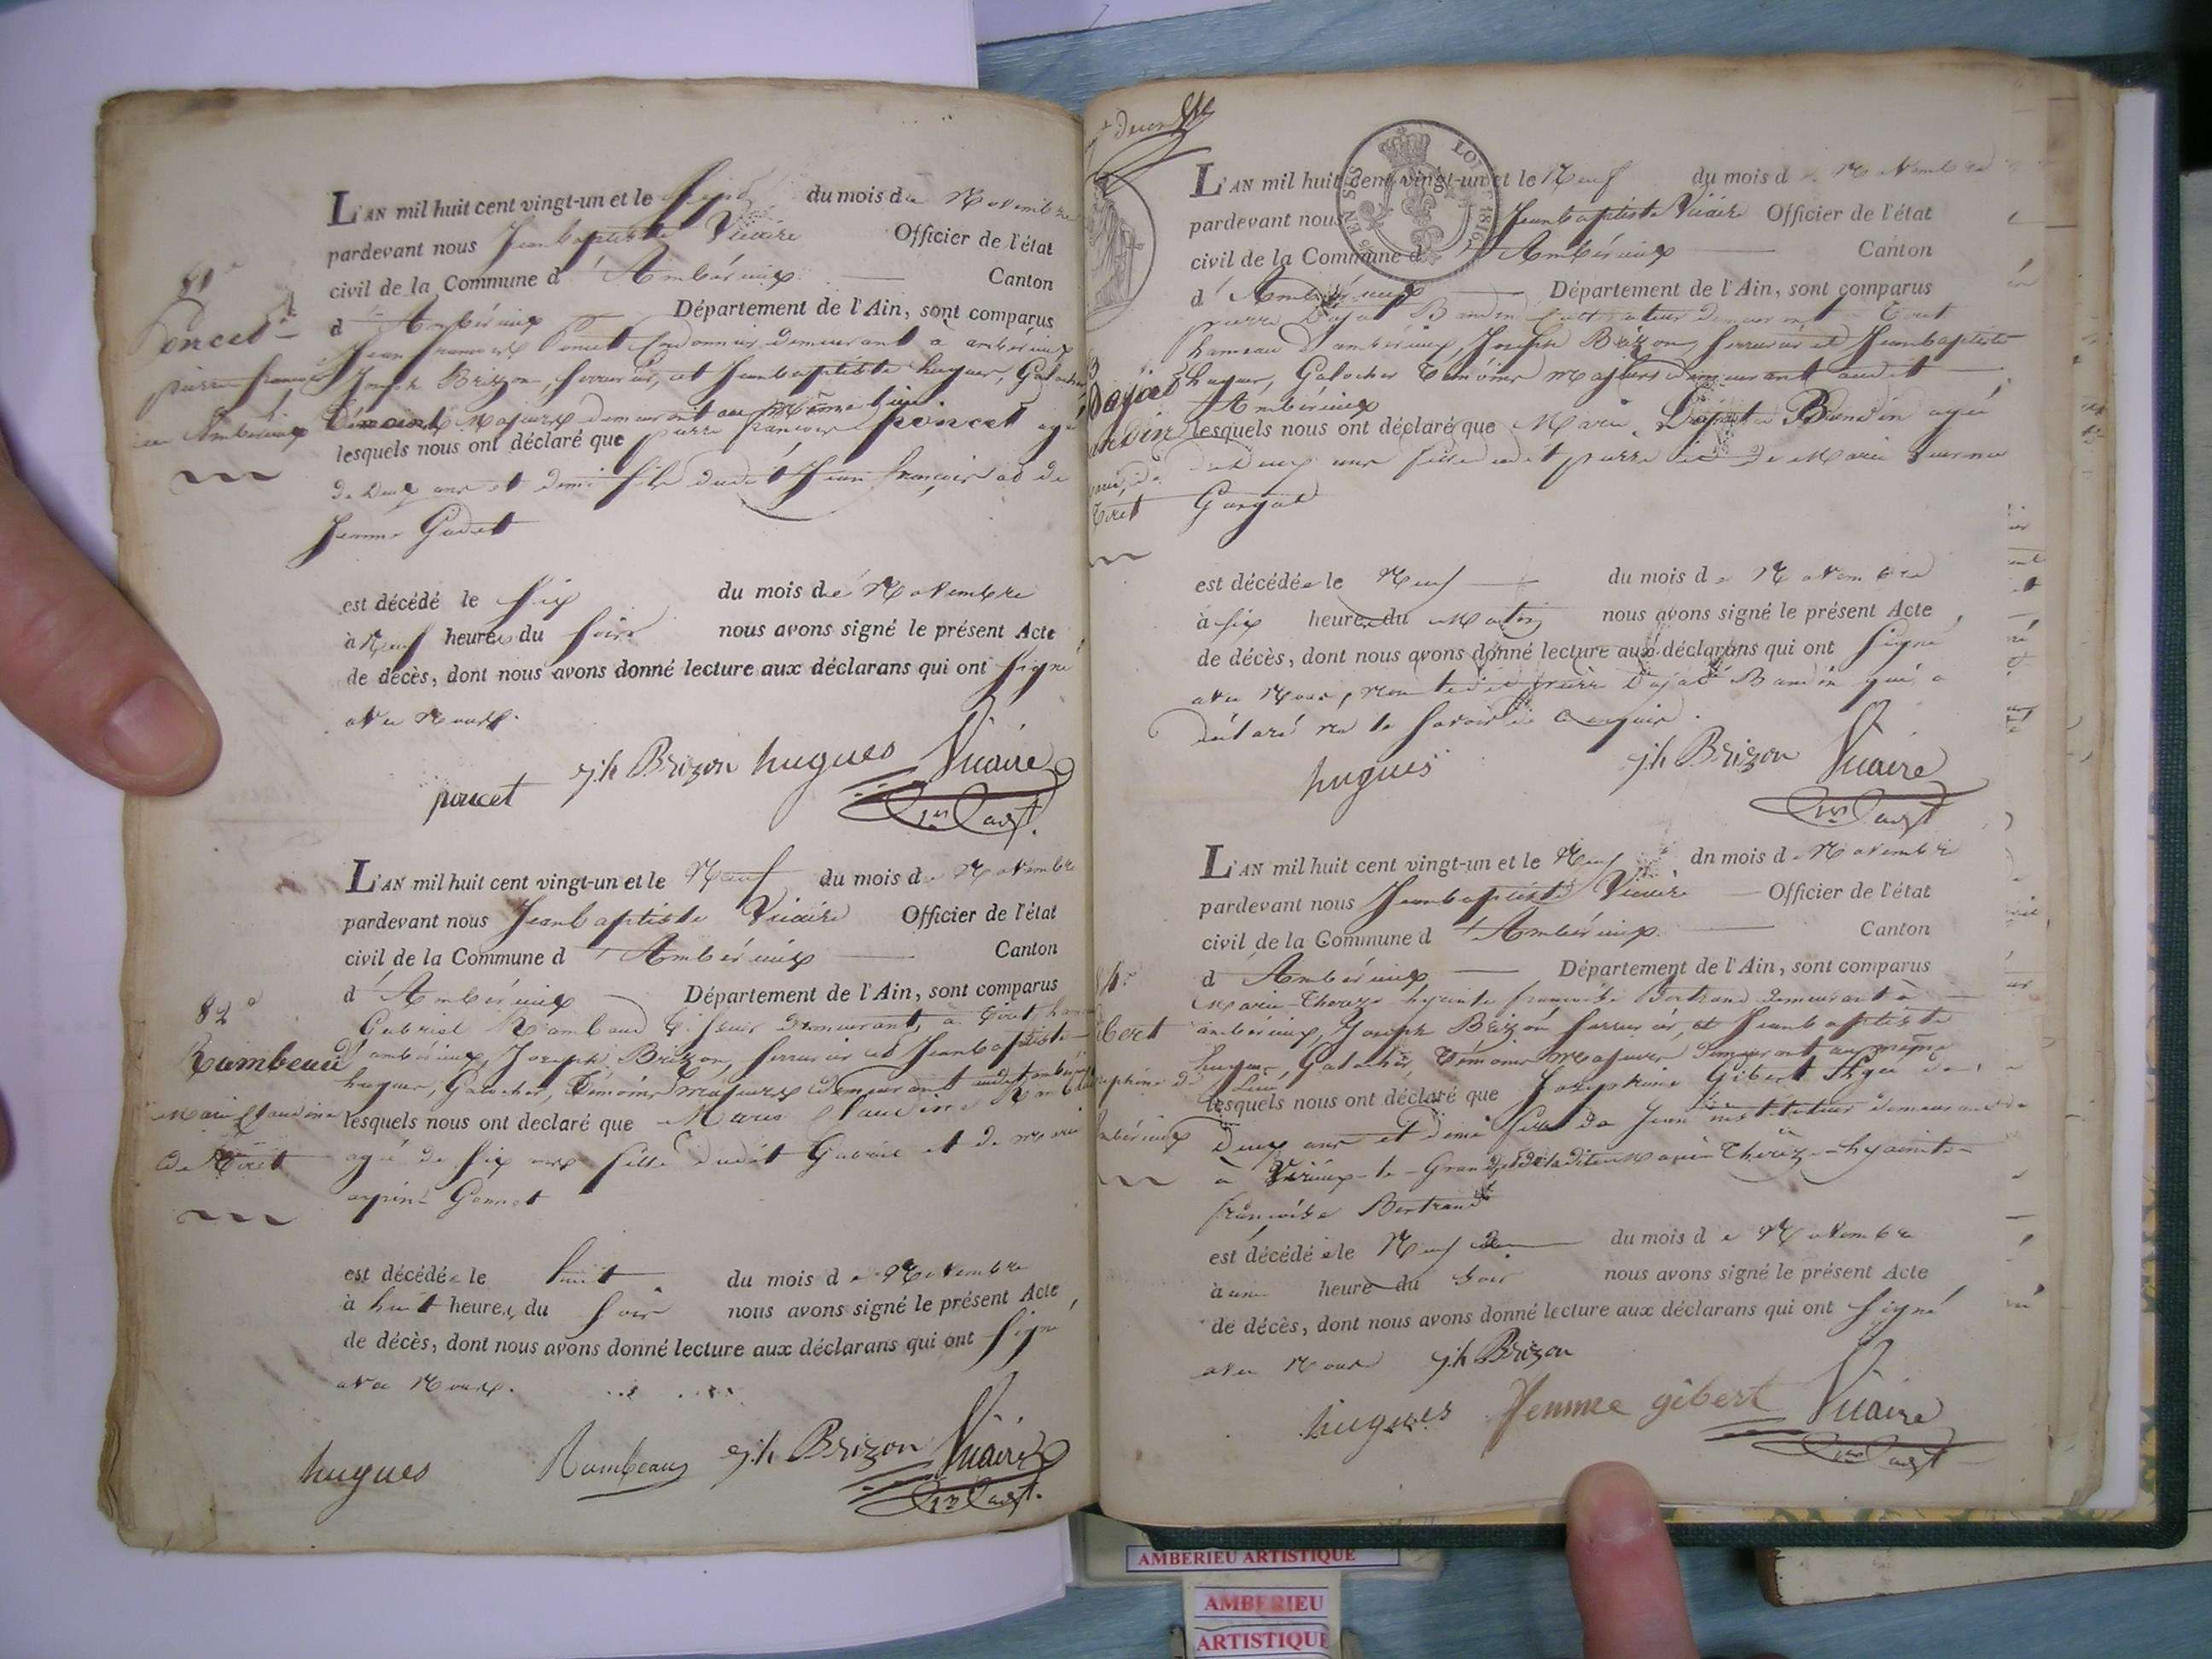 L'AN mil huit cent vingt-un et le Sept du mois de Novembre
pardevant nous Jeanbaptiste Vicaire Officier de l'état
civil de la Commune d'Ambérieux Canton
d'Ambérieux Département de l'Ain, sont comparus
Jean françois Poncet Cordonnier demeurant à ambérieux
Joseph Brizon, serrurier, et Jeanbaptiste hugues, Galocher
Témoins Majeurs demeurant au même lieu
lesquels nous ont déclaré que pierre françois poncet agé
de deux ans et demi fils dudit Jean françois et de
Jeanne Gadet
est décédé le six du mois de Novembre
à Neuf heures du soir nous avons signé le présent Acte
de décès, dont nous avons donné lecture aux déclarans qui ont signé
avec Nous.
poncet jh Brizon hugues Vicaire
1er adjt.
81e
Poncet
pierre françois
Ambérieux
L'AN mil huit cent vingt-un et le Neuf du mois de Novembre
pardevant nous Jeanbaptiste Vicaire Officier de l'état
civil de la Commune d'Ambérieux Canton
d'Ambérieux Département de l'Ain, sont comparus
Gabriel Rambaud demeurant à Tiret
d'ambérieux, Joseph Brizon, serrurier et Jeanbaptiste
hugues, Galocher, Témoins majeurs demeurant
lesquels nous ont declaré que Marie Claudine
agée de six ans fille dudit Gabriel et de Marie
Gonnet
est décédée le huit du mois de Novembre
à huit heures du soir nous avons signé le présent Acte
de décès, dont nous avons donné lecture aux déclarans qui ont signé
avec Nous.
hugues Rambeau jh Brizon Vicaire
1er adjt.
82e
Rambeau
Marie Claudine
de Tiret
LOI DE 1816
L'AN mil huit cent vingt-un et le Neuf du mois de Novembre
pardevant nous Jeanbaptiste Vicaire Officier de l'état
civil de la Commune d'Ambérieux Canton
d'Ambérieux Département de l'Ain, sont comparus
pierre Dajat Bandin Cultivateur demeurant Tiret
hameau d'ambérieux, Joseph Brizon, serrurier et Jeanbaptiste
hugues, Galocher Témoins Majeurs demeurant audit
Ambérieux
lesquels nous ont déclaré que Marie Bandin agée
deux ans fille dudit pierre et de Marie
est décédée le Neuf du mois de Novembre
à six heures du Matin nous avons signé le présent Acte
de décès, dont nous avons donné lecture aux déclarans qui ont signé
avec Nous, Non ledit pierre Dajat Bandin qui a
déclaré ne le savoir
hugues jh Brizon Vicaire
1er adjt
Tiret
L'AN mil huit cent vingt-un et le Neuf dn mois de Novembre
pardevant nous Jeanbaptiste Vicaire Officier de l'état
civil de la Commune d'Ambérieux Canton
d'Ambérieux Département de l'Ain, sont comparus
Marie Thereze hyacinte françoise Bertrand demeurant à
ambérieux, Joseph Brizon serrurier, et Jeanbaptiste
hugues, Galocher, Témoins Majeurs demeurant au même
Lieu
lesquels nous ont déclaré que Josephine Gibert Agée de
Deux ans et Demi fille de Jean instituteur demeurant
à Virieux-le-Grand et de ladite Marie Thérèze hyacinte
françoise Bertrand
est décédée le Neuf du mois de Novembre
à une heure du soir nous avons signé le présent Acte
de décès, dont nous avons donné lecture aux déclarans qui ont signé
avec Nous jh Brizon
hugues femme gibert Vicaire
1er adjt
AMBERIEU ARTISTIQUE
AMBERIEU
ARTISTIQUE